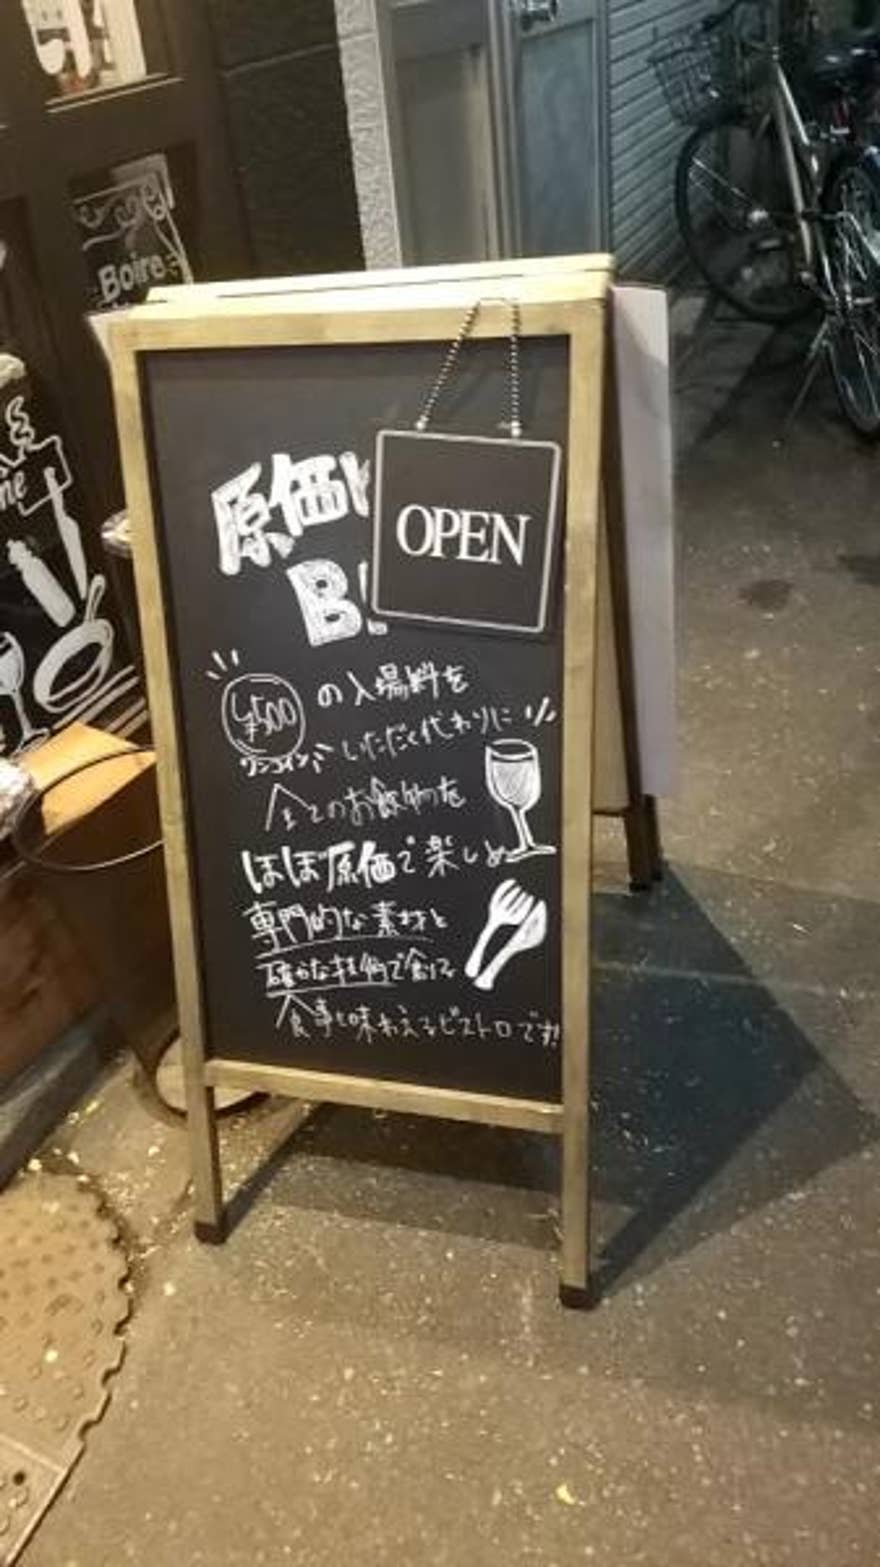 Boire
原価
OPEN
B
¥500 の入場料を
ワンコイン
いただく代わりに
全てのお飲物を
ほぼ原価で楽しめ
専門的な素材と
確かな技術で
食事を味わえるビストロです!